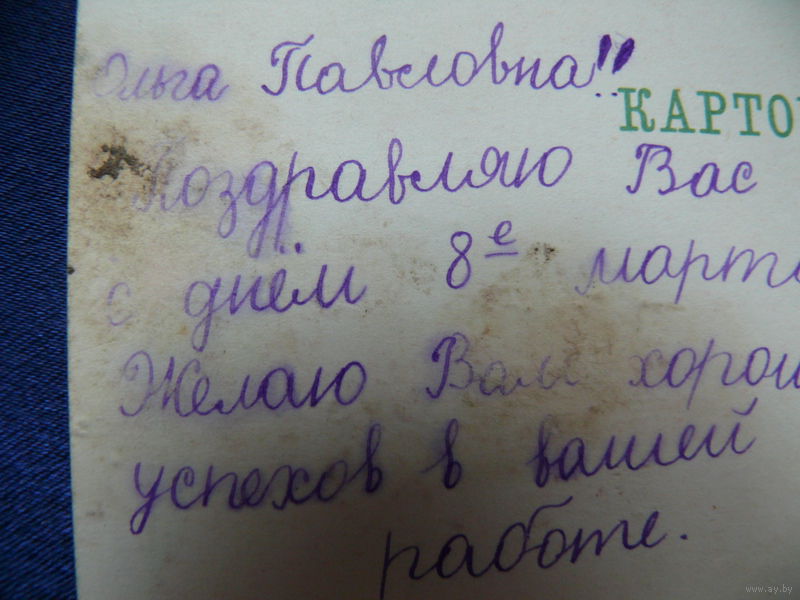 Ольга Павловна!!
КАРТО
Поздравляю Вас
с днём 8е март
Желаю Вам хорош
успехов в вашей
работе.
www.ay.by